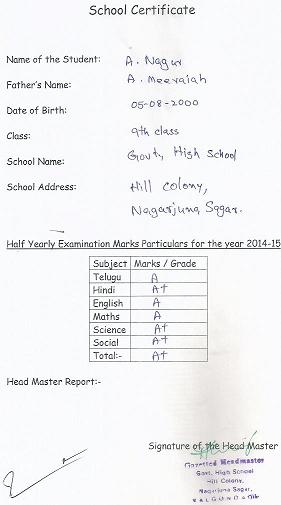 School Certificate
Name of the Student: A. Nagur
Father's Name: A. Meeraiah
Date of Birth: 05-08-2000
Class: 9th class
School Name: Govt, High School
School Address: Hill colony,
Nagarjuna Sagar.
Half Yearly Examination Marks Particulars for the year 2014-15
Subject Marks / Grade
Telugu A
Hindi A+
English A
Maths A
Science A+
Social A+
Total:- A+
Head Master Report:-
Signature of the Head Master
Gazetted Headmaster
Govt. High School
Hill Colony,
Nagarjuna Sagar,
NALGONDA